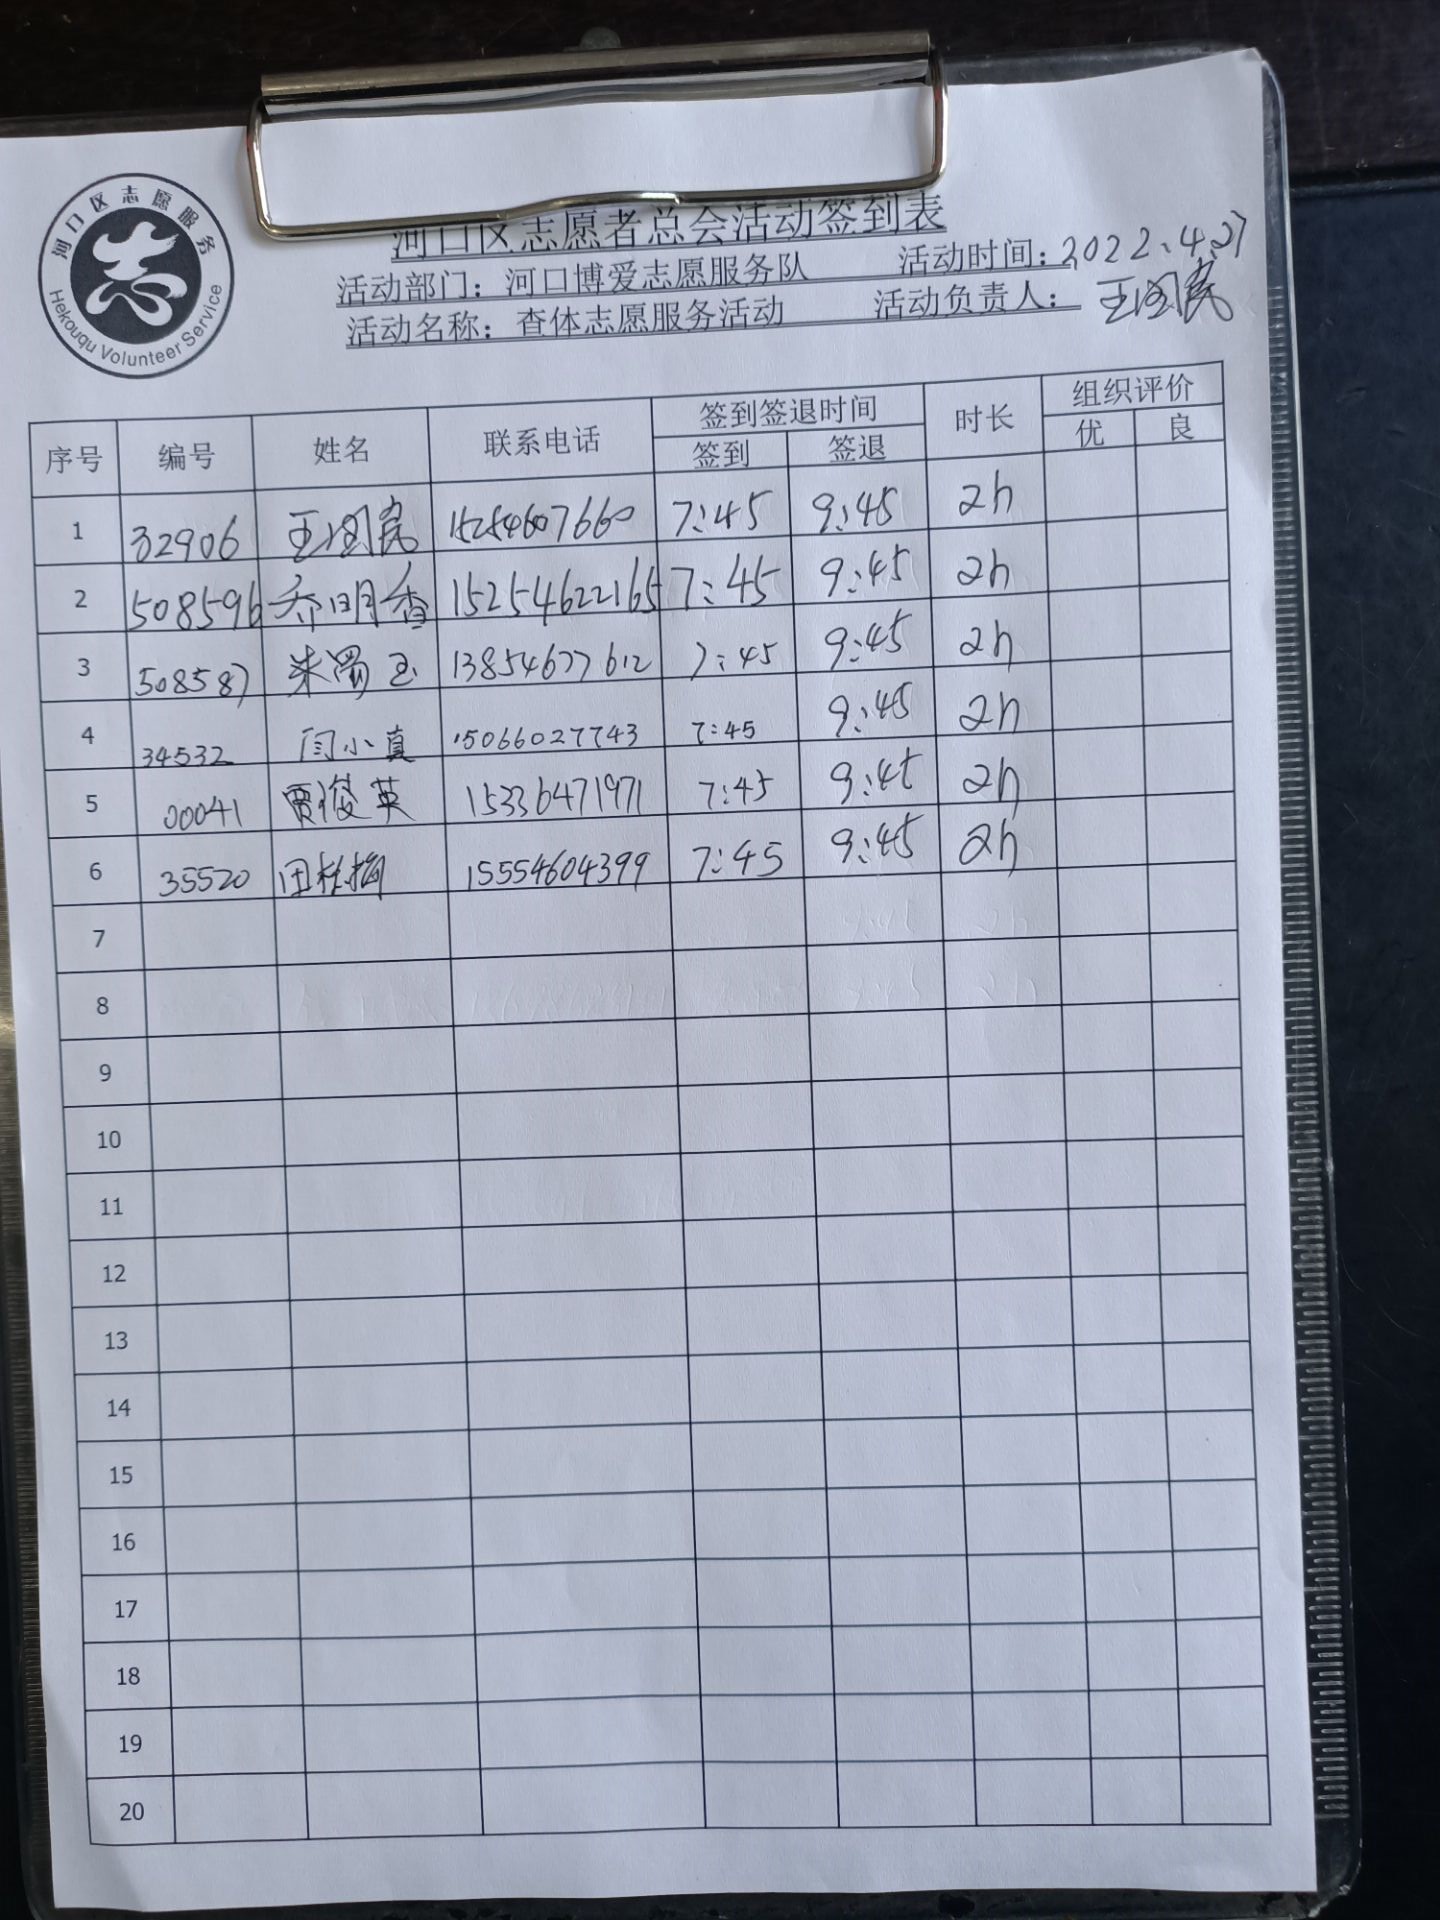 河口区志愿服务
志
Hekouqu Volunteer Service
河口区志愿者总会活动签到表
活动部门：河口博爱志愿服务队 活动时间：2022.4.27
活动名称：查体志愿服务活动 活动负责人：王国亮
序号 编号 姓名 联系电话 签到签退时间 时长 组织评价
签到 签退 优 良
1 32906 王国亮 15254607660 7:45 9:45 2h
2 508596 乔明香 15254622165 7:45 9:45 2h
3 508587 朱蜀玉 13854677612 7:45 9:45 2h
4 34532 闫小真 15066027743 7:45 9:45 2h
5 00041 贾俊英 15336471971 7:45 9:45 2h
6 35520 田桂梅 15554604399 7:45 9:45 2h
7
8
9
10
11
12
13
14
15
16
17
18
19
20